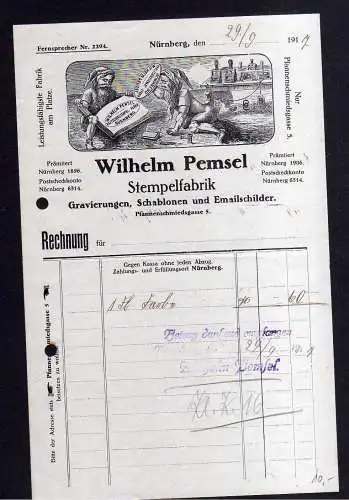 Fernsprecher Nr. 2394.
Nürnberg, den 29/9 1917
Leistungsfähigste Fabrik am Platze.
Nur Pfannenschmiedsgasse 5.
WILHELM PEMSEL
NÜRNBERG.
Prämiiert Nürnberg 1896.
Postscheckkonto Nürnberg 6314.
Prämiiert Nürnberg 1906.
Postscheckkonto Nürnberg 6314.
Wilhelm Pemsel
Stempelfabrik
Gravierungen, Schablonen und Emailschilder.
Pfannenschmiedsgasse 5.
Rechnung für
Gegen Kassa ohne jeden Abzug.
Zahlungs- und Erfüllungsort Nürnberg.
Bitte der Adresse stets Pfannenschmiedsgasse 5 beisetzen zu wollen
1 60
Betrag dankend empfangen
29/9
Wilhelm Pemsel.
10,-